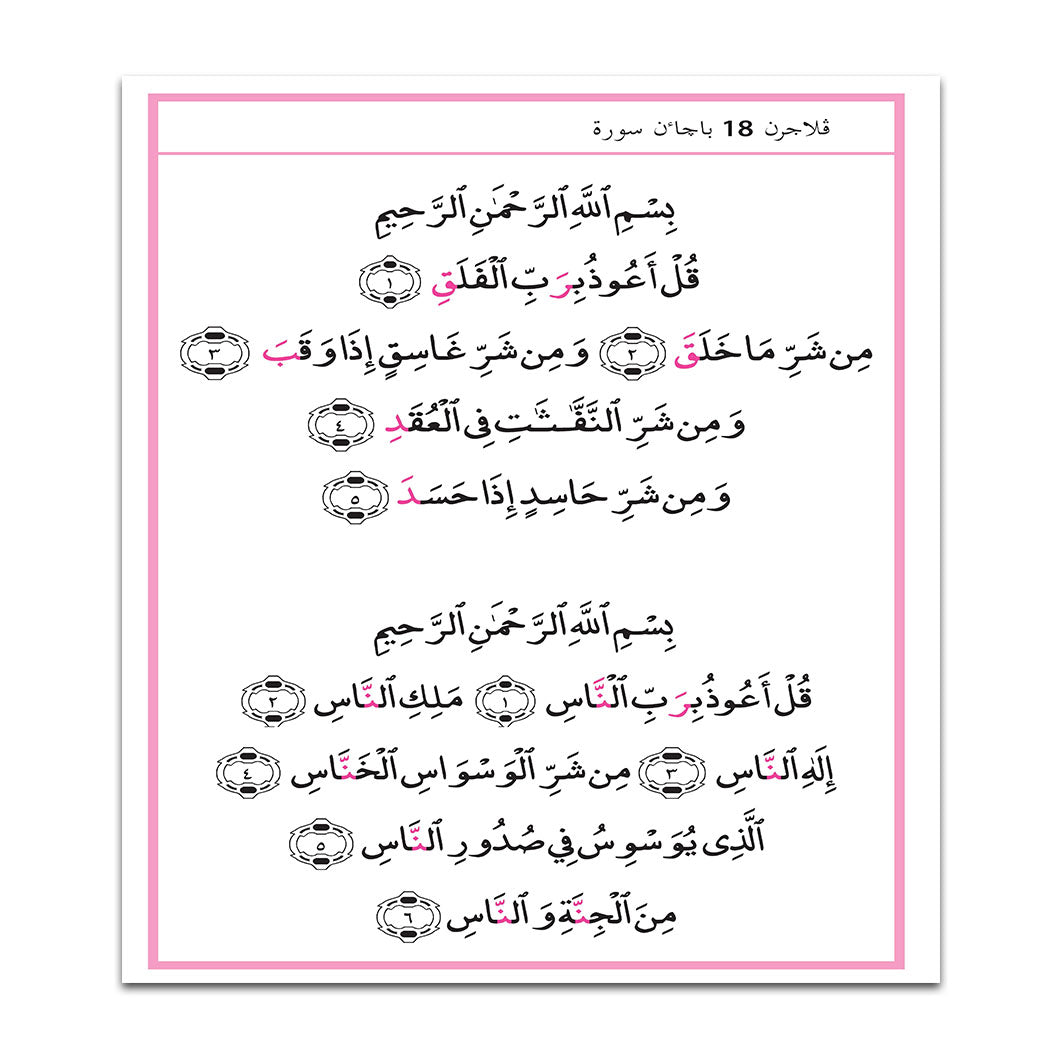 ڤلاجرن 18 باچاءن سورة
بِسْمِ ٱللَّهِ ٱلرَّحْمَٰنِ ٱلرَّحِيمِ
قُلْ أَعُوذُ بِرَبِّ ٱلْفَلَقِ ١
مِن شَرِّ مَا خَلَقَ ٢ وَمِن شَرِّ غَاسِقٍ إِذَا وَقَبَ ٣
وَمِن شَرِّ ٱلنَّفَّٰثَٰتِ فِى ٱلْعُقَدِ ٤
وَمِن شَرِّ حَاسِدٍ إِذَا حَسَدَ ٥
بِسْمِ ٱللَّهِ ٱلرَّحْمَٰنِ ٱلرَّحِيمِ
قُلْ أَعُوذُ بِرَبِّ ٱلْنَّاسِ ١ مَلِكِ ٱلنَّاسِ ٢
إِلَهِ ٱلنَّاسِ ٣ مِن شَرِّ ٱلْوَسْوَاسِ ٱلْخَنَّاسِ ٤
ٱلَّذِى يُوَسْوِسُ فِي صُدُورِ ٱلنَّاسِ ٥
مِنَ ٱلْجِنَّةِ وَ ٱلنَّاسِ ٦